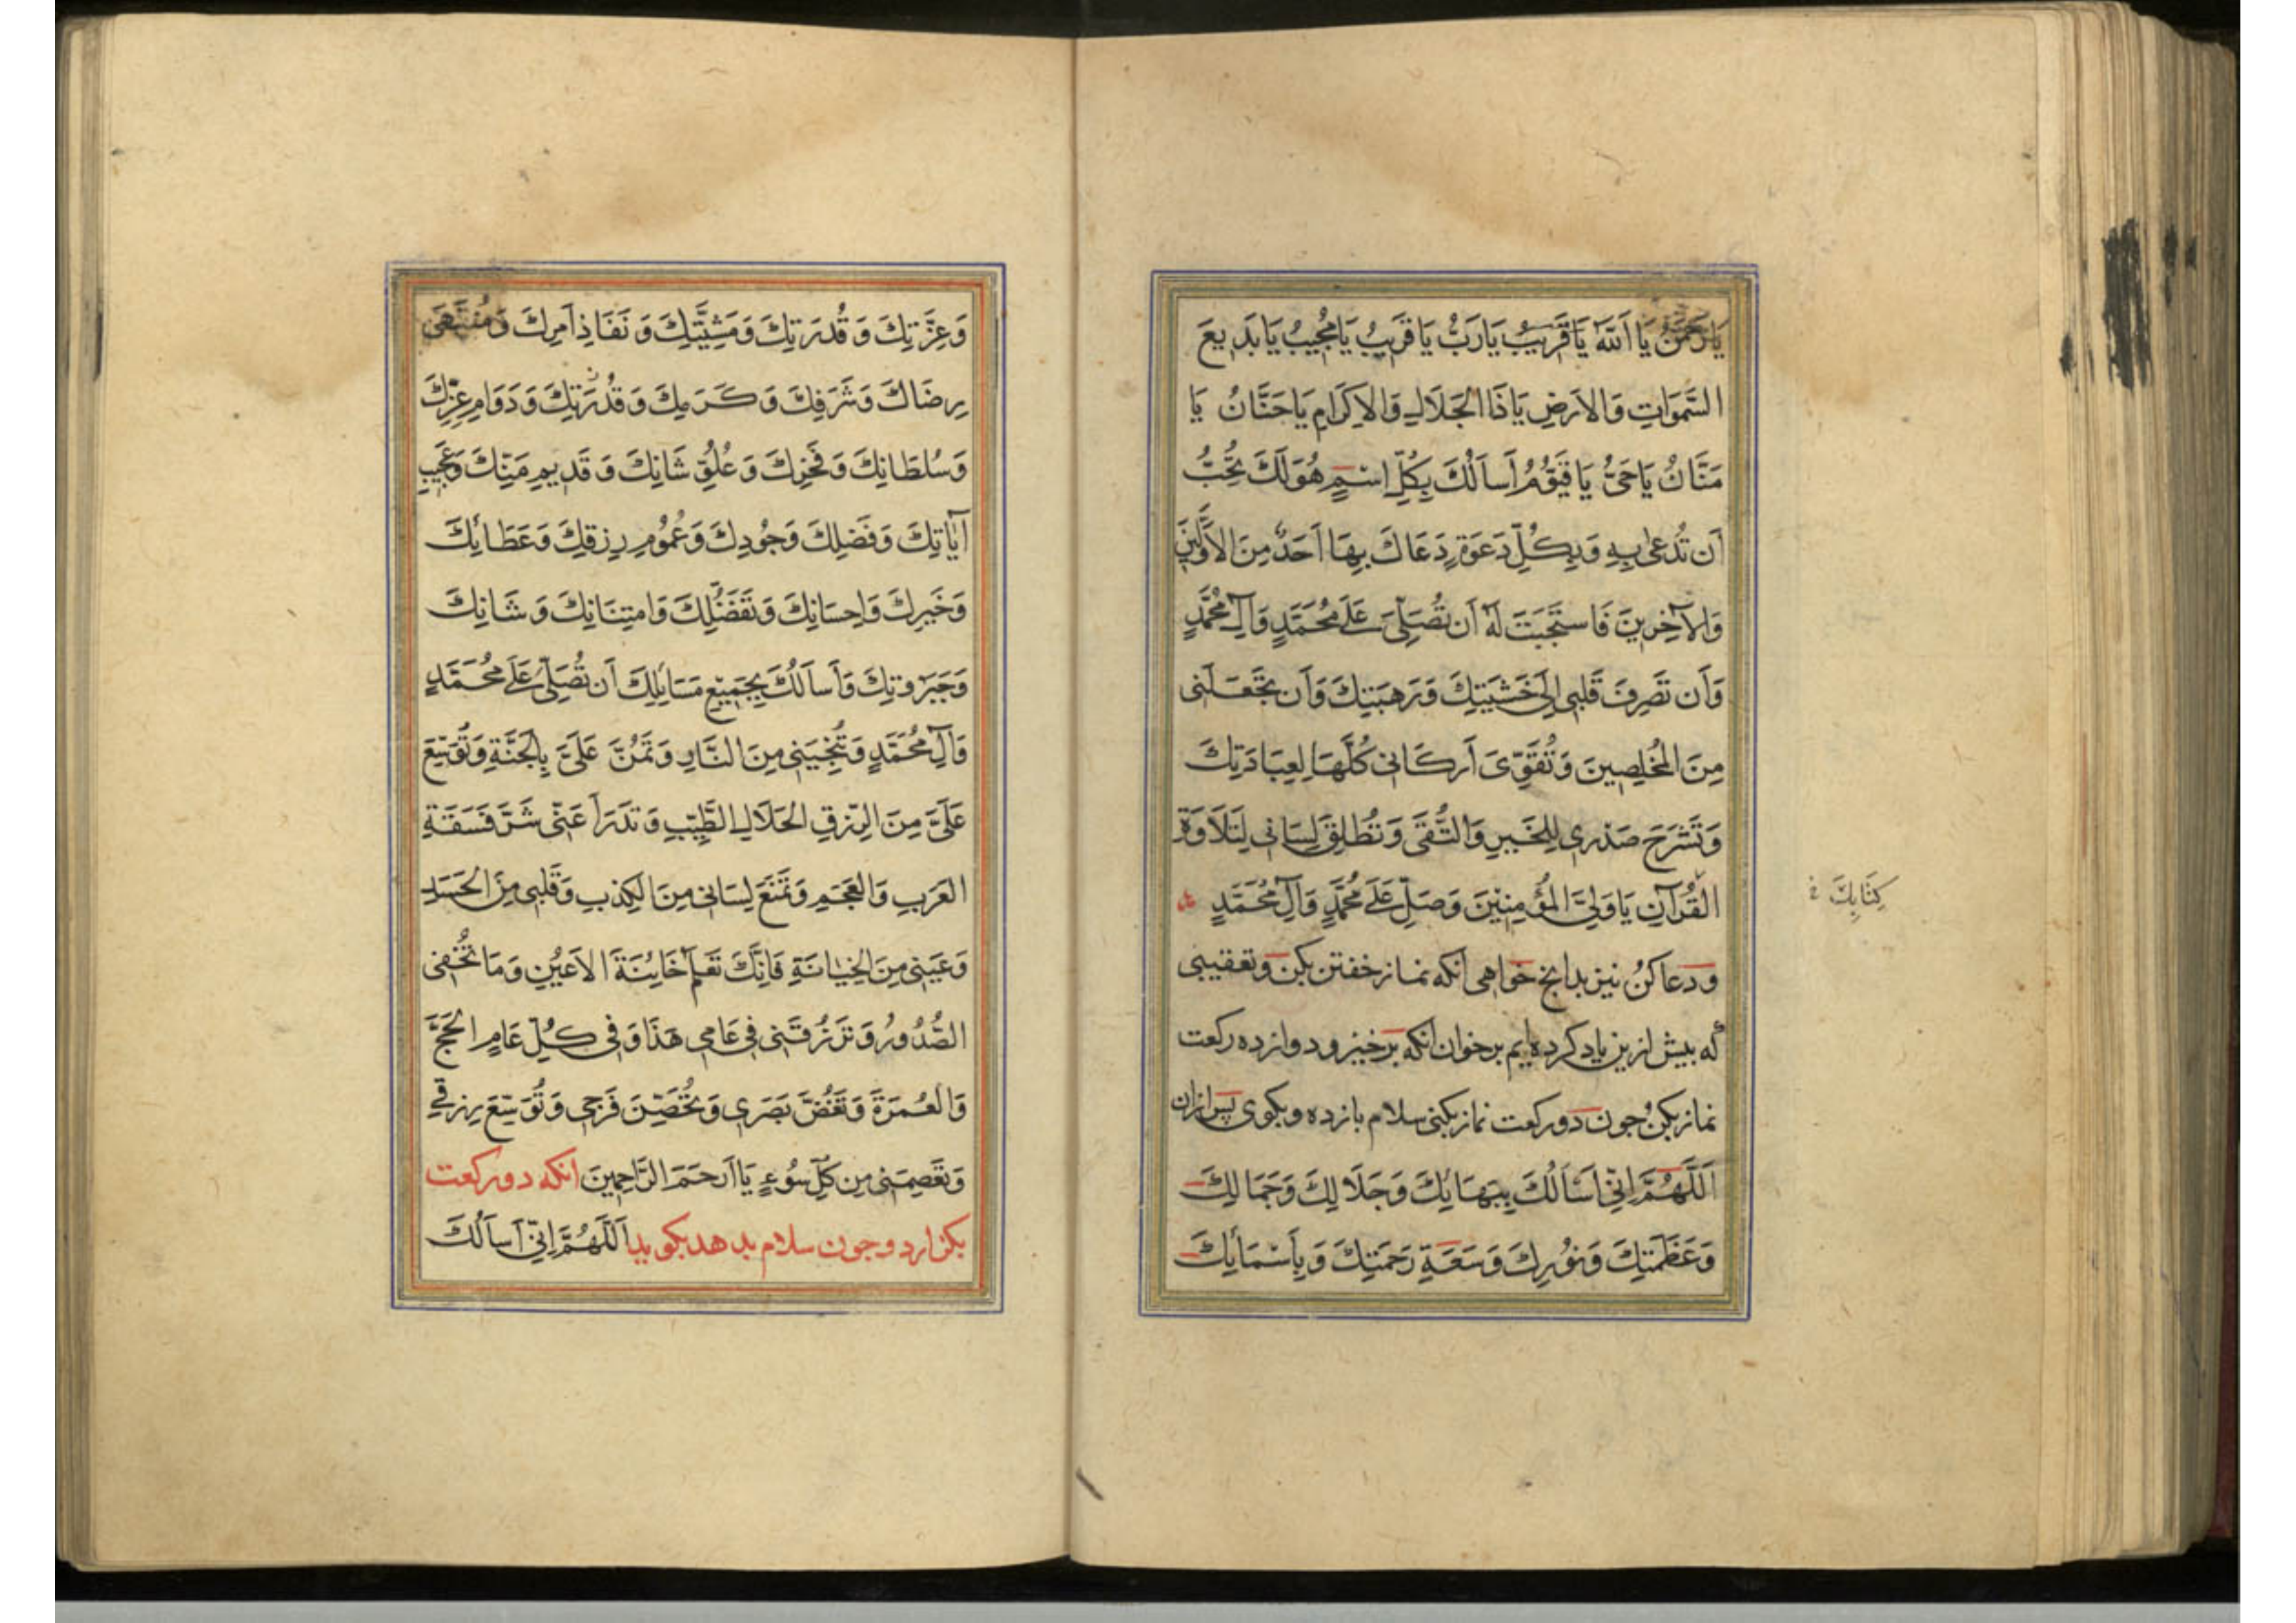 يَا رَحْمٰنُ يَا اَللّٰهُ يَا قَرِيبُ يَا رَبُّ يَا قَرِيبُ يَا مُجِيبُ يَا بَدِيعَ
السَّمَوَاتِ وَالاَرضِ يَا ذَا الجَلَالِ وَالاِكرَامِ يَا حَنَّانُ يَا
مَنَّانُ يَا حَىُّ يَا قَيُّوْمُ اَسأَلُكَ بِكُلِّ اسْمٍ هُوَ لَكَ تُحِبُّ
اَن تُدعىٰ بِهِ وَبِكُلِّ دَعوَةٍ دَعَاكَ بِهَا اَحَدٌ مِنَ الاَوَّلِينَ
وَالآخِرِينَ فَاستَجَبتَ لَهُ اَن تُصَلِّىَ عَلَى مُحَمَّدٍ وَآلِ مُحَمَّدٍ
وَاَن تَصرِفَ قَلبِى اِلَى خَشيَتِكَ وَرَهبَتِكَ وَاَن تَجعَلَنى
مِنَ المُخلِصِينَ وَتُقَوِّىَ اَركَانى كُلَّهَا لِعِبَادَتِكَ
وَتَشرَحَ صَدرِى لِلخَيرِ وَالتُّقَى وَتُطلِقَ لِسَانى لِتَلَاوَةِ
القُرآنِ يَا وَلِىَّ المُؤمِنِيْنَ وَصَلِّ عَلَى مُحَمَّدٍ وَآلِ مُحَمَّدٍ
كِتَابِكَ خ
ودعا كنُ نيز بدانج خواهى انكه نماز خفتن بكن وتعقيبى
كه بيش ازين ياد كرده ايم برخوان انكه برخيز ودوازده ركعت
نماز بكنُ جون دو ركعت نماز بكنى سلام بازده وبكوى پس ازان
اَللّٰهُمَّ اِنِّى اَسْأَلُكَ بِبَهَائِكَ وَجَلَالِكَ وَجَمَالِكَ
وَعَظَمَتِكَ وَنُورِكَ وَسَعَةِ رَحمَتِكَ وَبِأَسْمَائِكَ
وَعِزَّتِكَ وَقُدرَتِكَ وَمَشِيَّتِكَ وَنَفَاذِ اَمرِكَ وَمُنتَهَى
رِضَاكَ وَشَرَفِكَ وَكَرَمِكَ وَقُدرَتِكَ وَدَوَامِ عِزِّكَ
وَسُلطَانِكَ وَفَخرِكَ وَعُلُوِّ شَانِكَ وَقَدِيمِ مَنِّكَ وَعَجِيبِ
آيَاتِكَ وَفَضلِكَ وَجُودِكَ وَعُمُومِ رِزقِكَ وَعَطَائِكَ
وَخَيرِكَ وَاِحسَانِكَ وَتَفَضُّلِكَ وَامتِنَانِكَ وَشَانِكَ
وَجَبَرُوتِكَ وَأَسأَلُكَ بِجَمِيعِ مَسَايِلِكَ اَن تُصَلِّىَ عَلَى مُحَمَّدٍ
وَآلِ مُحَمَّدٍ وَتُنْجِيَنِى مِنَ النَّارِ وَتَمُنَّ عَلَىَّ بِالجَنَّةِ وَتُوَسِّعَ
عَلَىَّ مِنَ الرِّزقِ الحَلَالِ الطَّيِّبِ وَتَدرَأَ عَنِّى شَرَّ فَسَقَةِ
العَرَبِ وَالعَجَمِ وَتَمنَعَ لِسَانى مِنَ الكِذبِ وَقَلبِى مِنَ الحَسَدِ
وَعَينِى مِنَ الخِيَانَةِ فَاِنَّكَ تَعلَمُ خَائِنَةَ الاَعيُنِ وَمَا تُخفِى
الصُّدُورُ وَتَرزُقَنِى فِى عَامِى هَذَا وَفِى كُلِّ عَامٍ الحَجَّ
وَالعُمرَةَ وَتَغُضَّ بَصَرِى وَتُحَصِّنَ فَرجِى وَتُوَسِّعَ رِزقِى
وَتَعصِمَنى مِن كُلِّ سُوءٍ يَا اَرحَمَ الرَّاحِمِينَ انكه دو ركعت
بكزارد وجون سلام بدهد بكويد اَللّٰهُمَّ اِنِّى اَسأَلُكَ